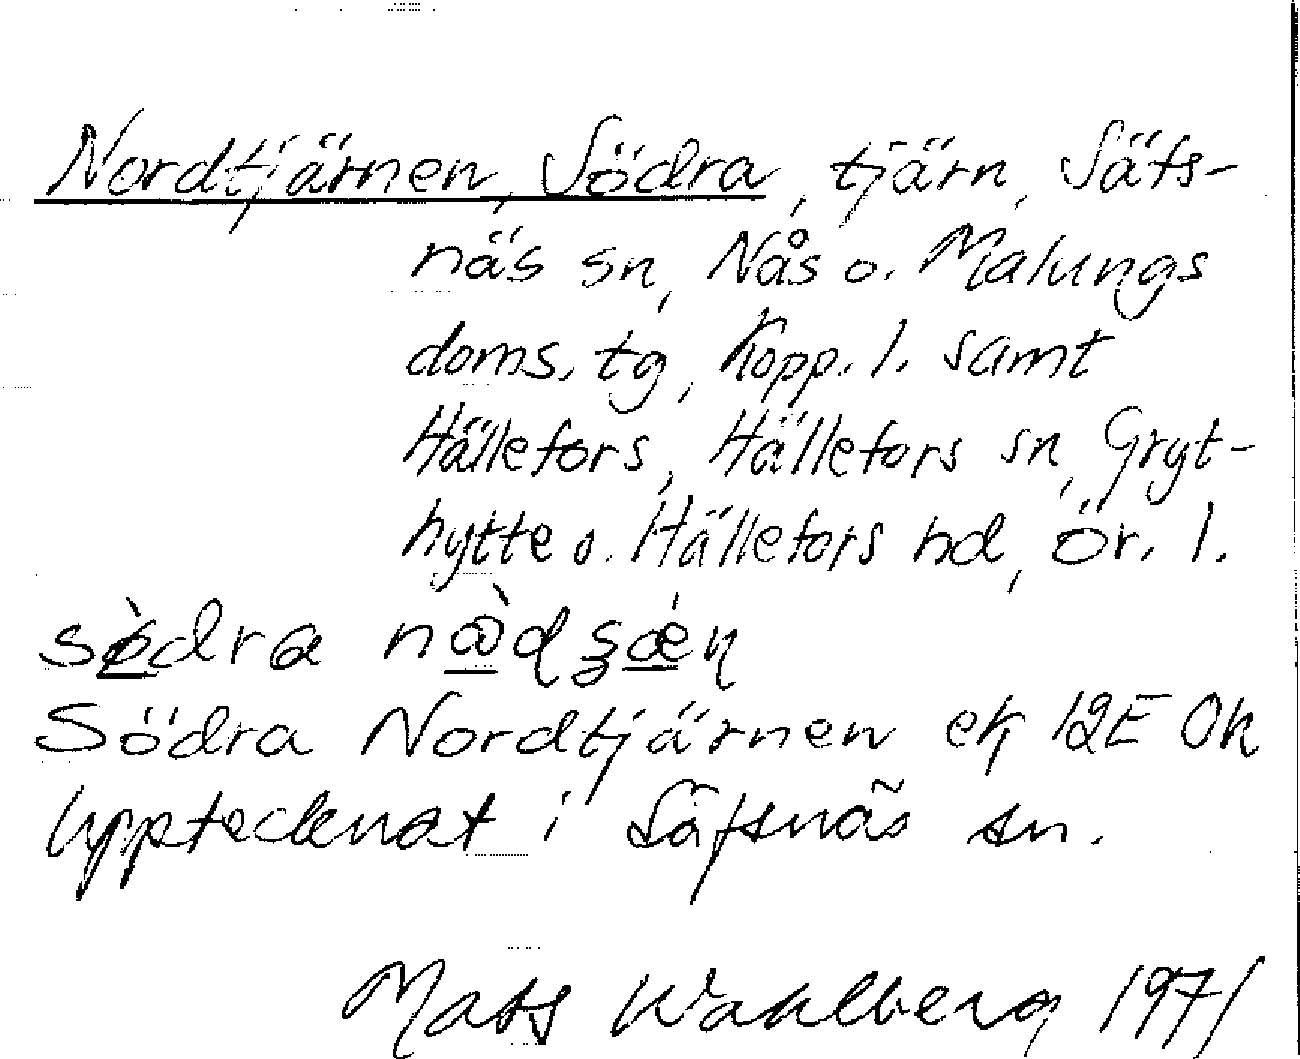 Nordtjärnen, Södra, tjärn, Säfs-
näs sn, Nås o. Malungs
doms. tg, Kopp. l. samt
Hällefors, Hällefors sn, Gryt-
hytte o. Hällefors hd, Ör. l.
södra
Södra Nordtjärnen ek 12E 0h
Upptecknat i Säfsnäs sn.
Mats Wahlberg 1971